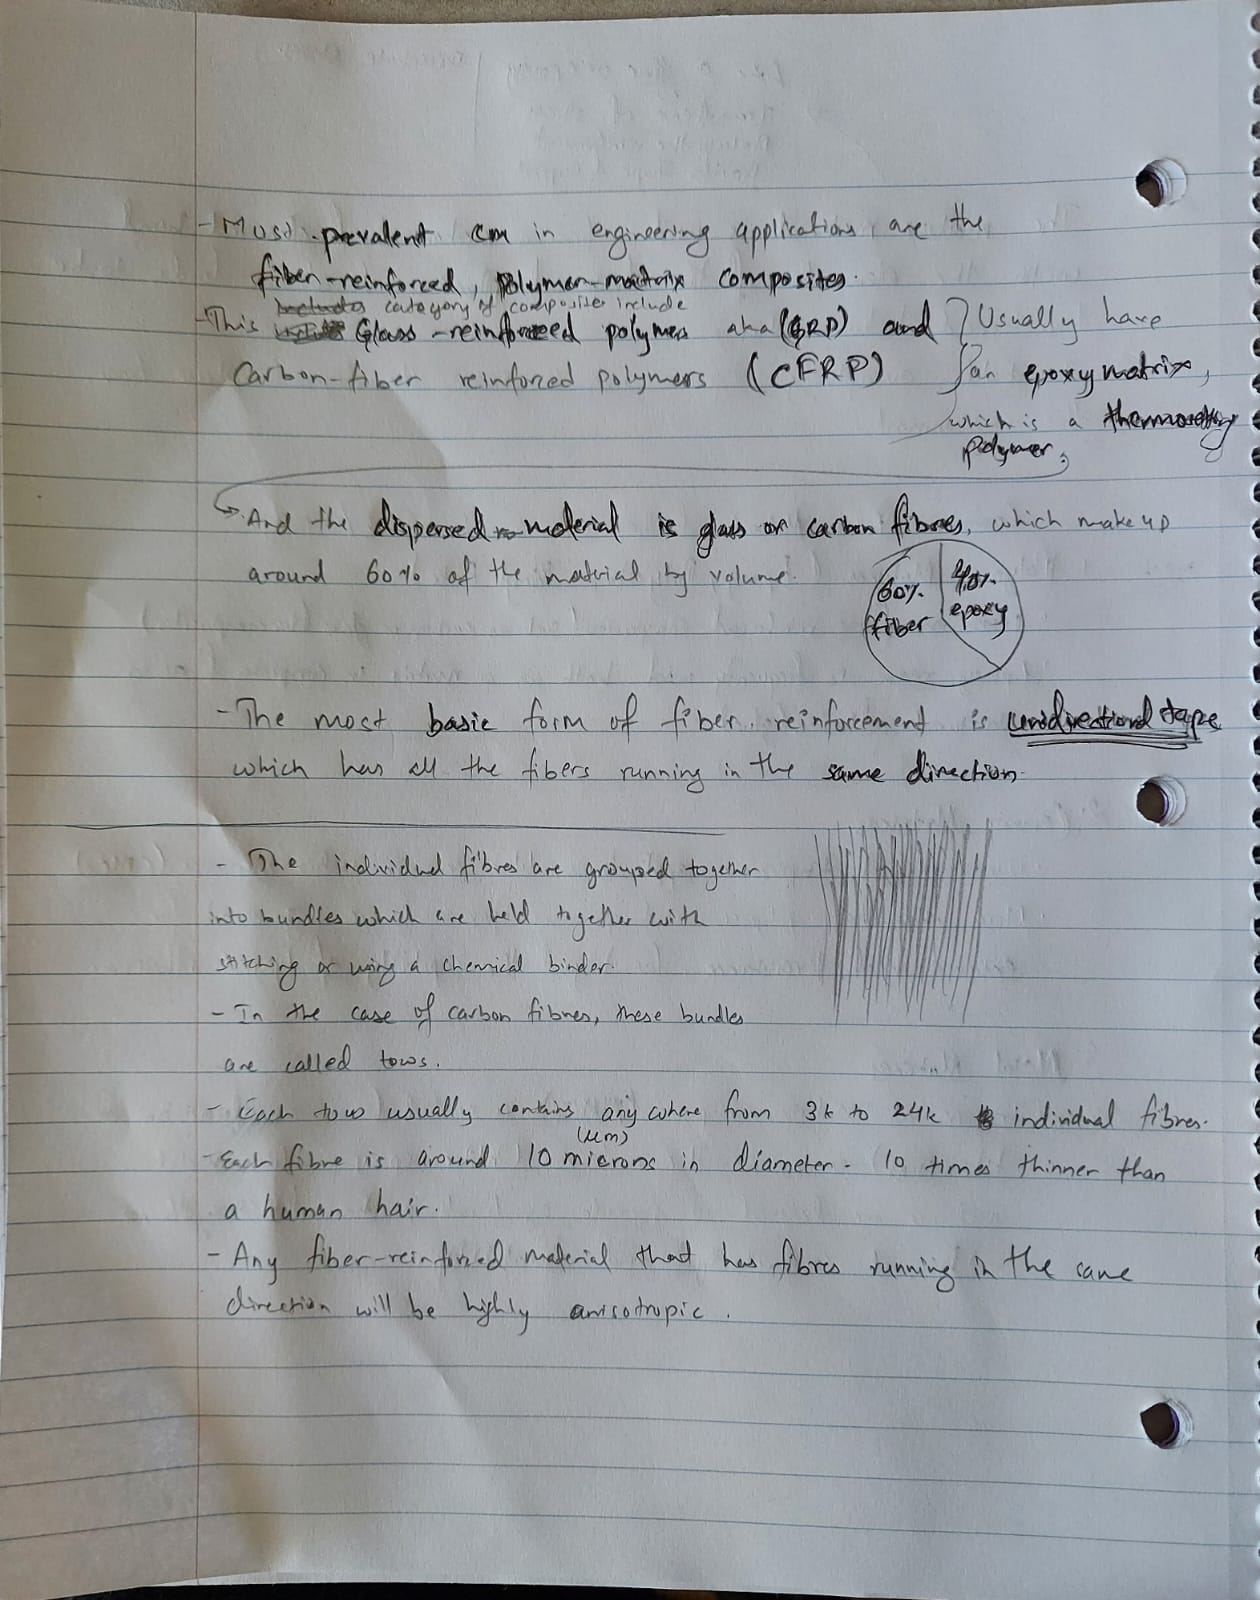 - Most prevalent cm in engineering applications, are the
fiber-reinforced, polymer-matrix composites.
category of composites include
- This Glass-reinforced polymers aka (GRP) and
Carbon-fiber reinforced polymers (CFRP)
Usually have
an epoxy matrix,
which is a thermosetting
polymer,
And the dispersed material is glass or carbon fibres, which make up
around 60% of the material by volume.
60% fiber
40% epoxy
- The most basic form of fiber reinforcement is unidirectional tape
which has all the fibers running in the same direction.
- The individual fibres are grouped together
into bundles which are held together with
stitching or using a chemical binder.
- In the case of carbon fibres, these bundles
are called tows.
- Each tow usually contains anywhere from 3k to 24k individual fibres.
(μm)
- Each fibre is around 10 microns in diameter - 10 times thinner than
a human hair.
- Any fiber-reinforced material that has fibres running in the same
direction will be highly anisotropic.